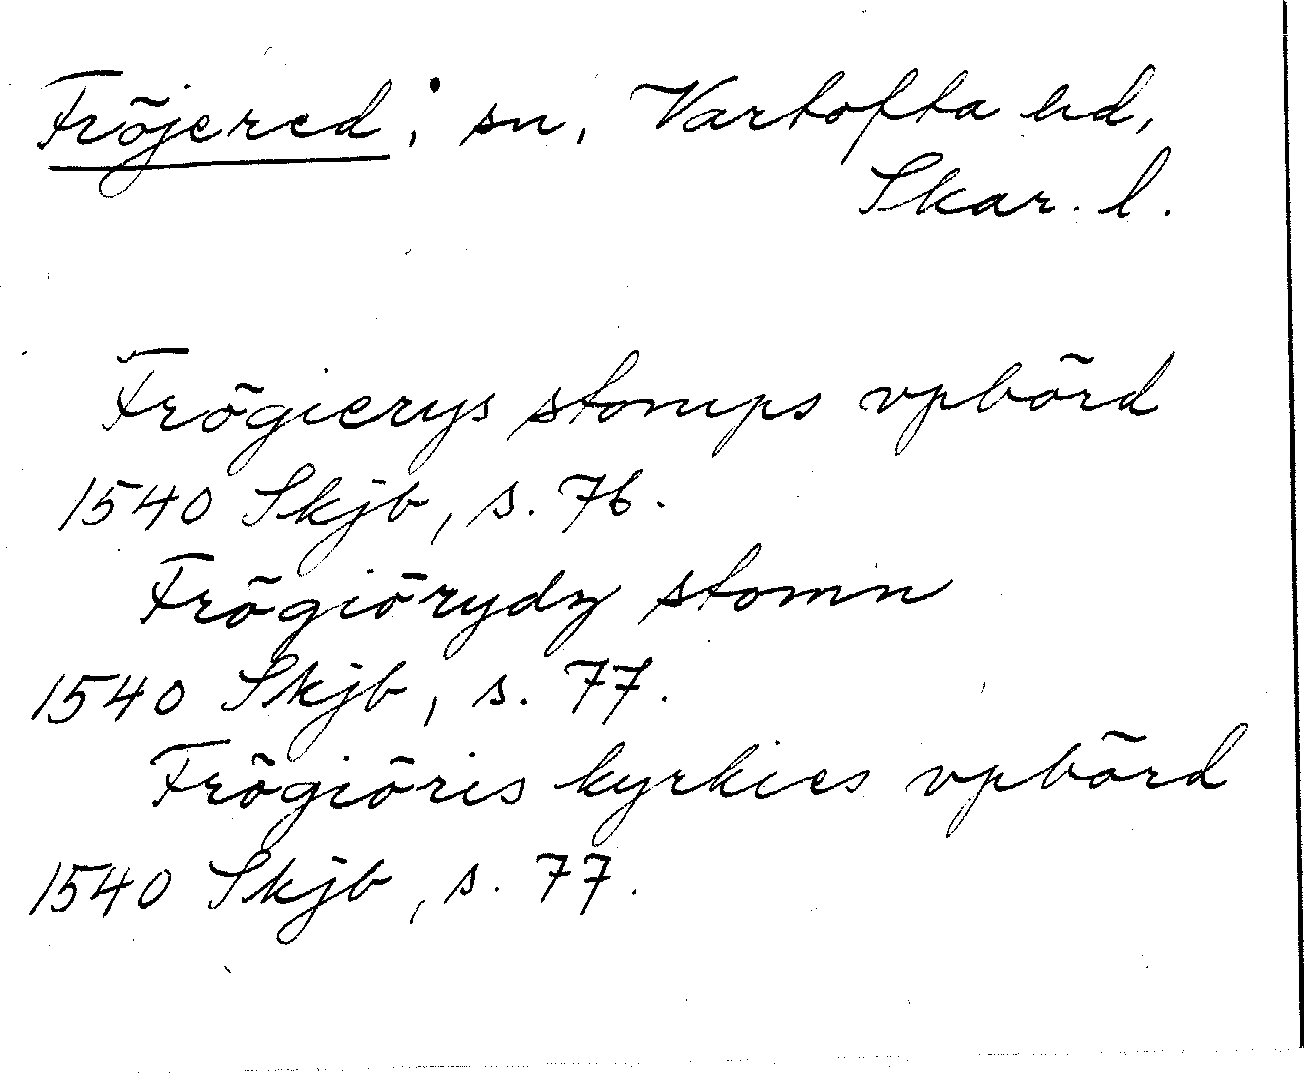 Fröjered, sn, Vartofta hd,
Skar. l.
Frögierys stomps vpbörd
1540 Skjb, s. 76.
Frögiörydz stomn
1540 Skjb, s. 77.
Frögiöris kyrkies vpbörd
1540 Skjb, s. 77.